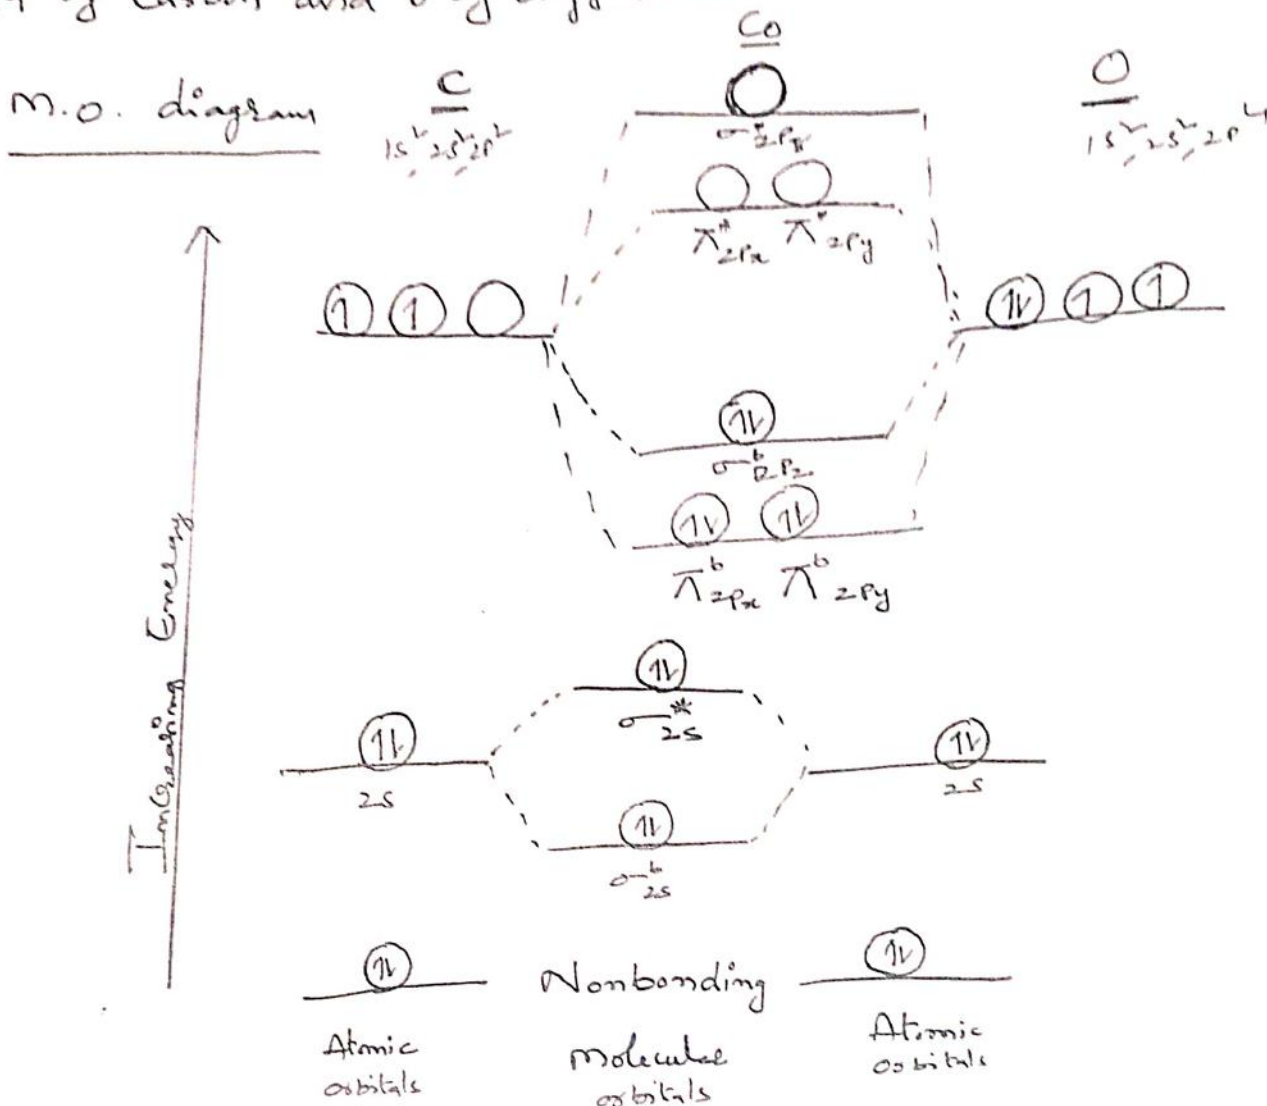 of
and
Co
M.O. diagram
C
O
1s², 2s², 2p²
1s², 2s², 2p⁴
σ*2Pz
π*2Px π*2Py
↿ ↿
↿⇂ ↿ ↿
↿⇂
σᵇ2Pz
↿⇂ ↿⇂
πᵇ2Px πᵇ2Py
Increasing Energy
↿⇂
σ*2s
↿⇂
↿⇂
2s
2s
↿⇂
σᵇ2s
↿⇂
Nonbonding
↿⇂
Atomic orbitals
Molecular orbitals
Atomic orbitals